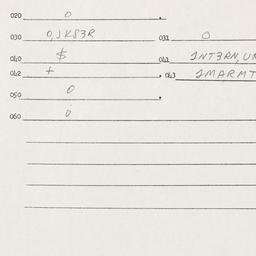 020 0
030 0,JKS3R 031 0
040 $ 041 INT3RN,UN
042 + 043 IMARMT
050 0
060 i